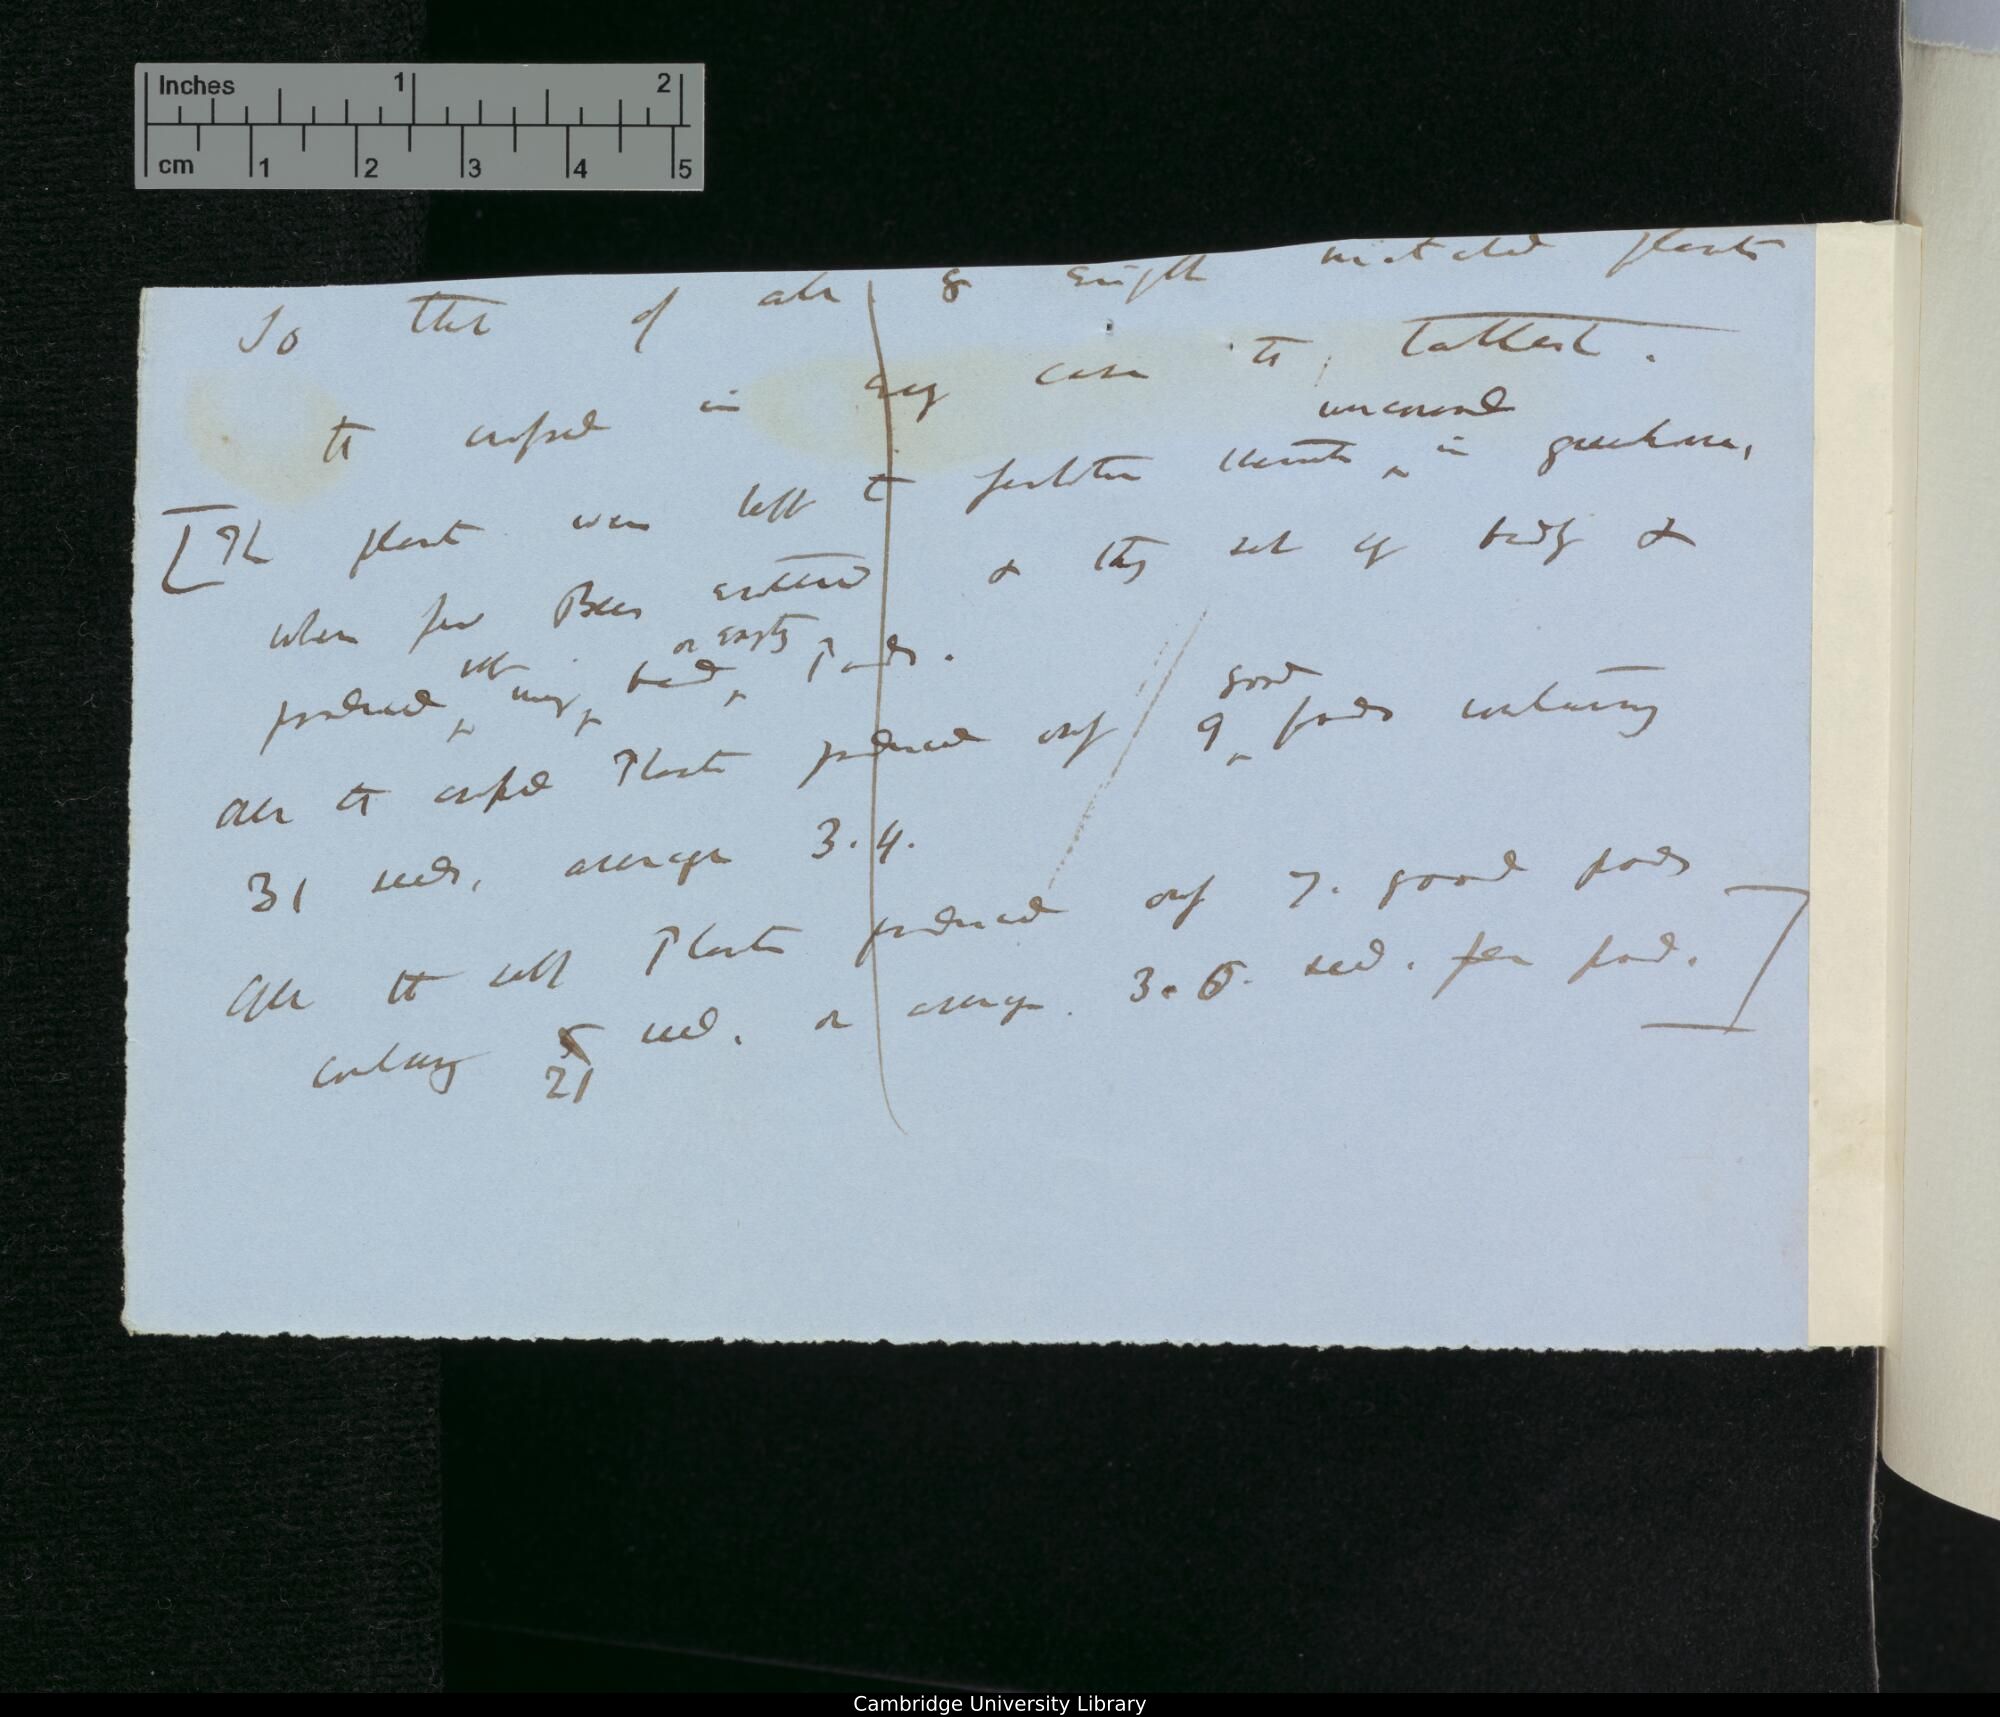 Inches 1 2
cm 1 2 3 4 5
So that of all 8 singly matched plants
the crossed in every case the tallest.
[The plants were left to fertilise themselves uncovered in greehouse,
when few Bees entered & they set very badly &
produced with many bad or empty Pods.
All the crossed Plants produced only 9 good pods containing
31 seeds, average 3.4.
All the self Plants produced only 7. good pods
containing 21 seed. or average. 3.5. seed. per pod.]
Cambridge University Library